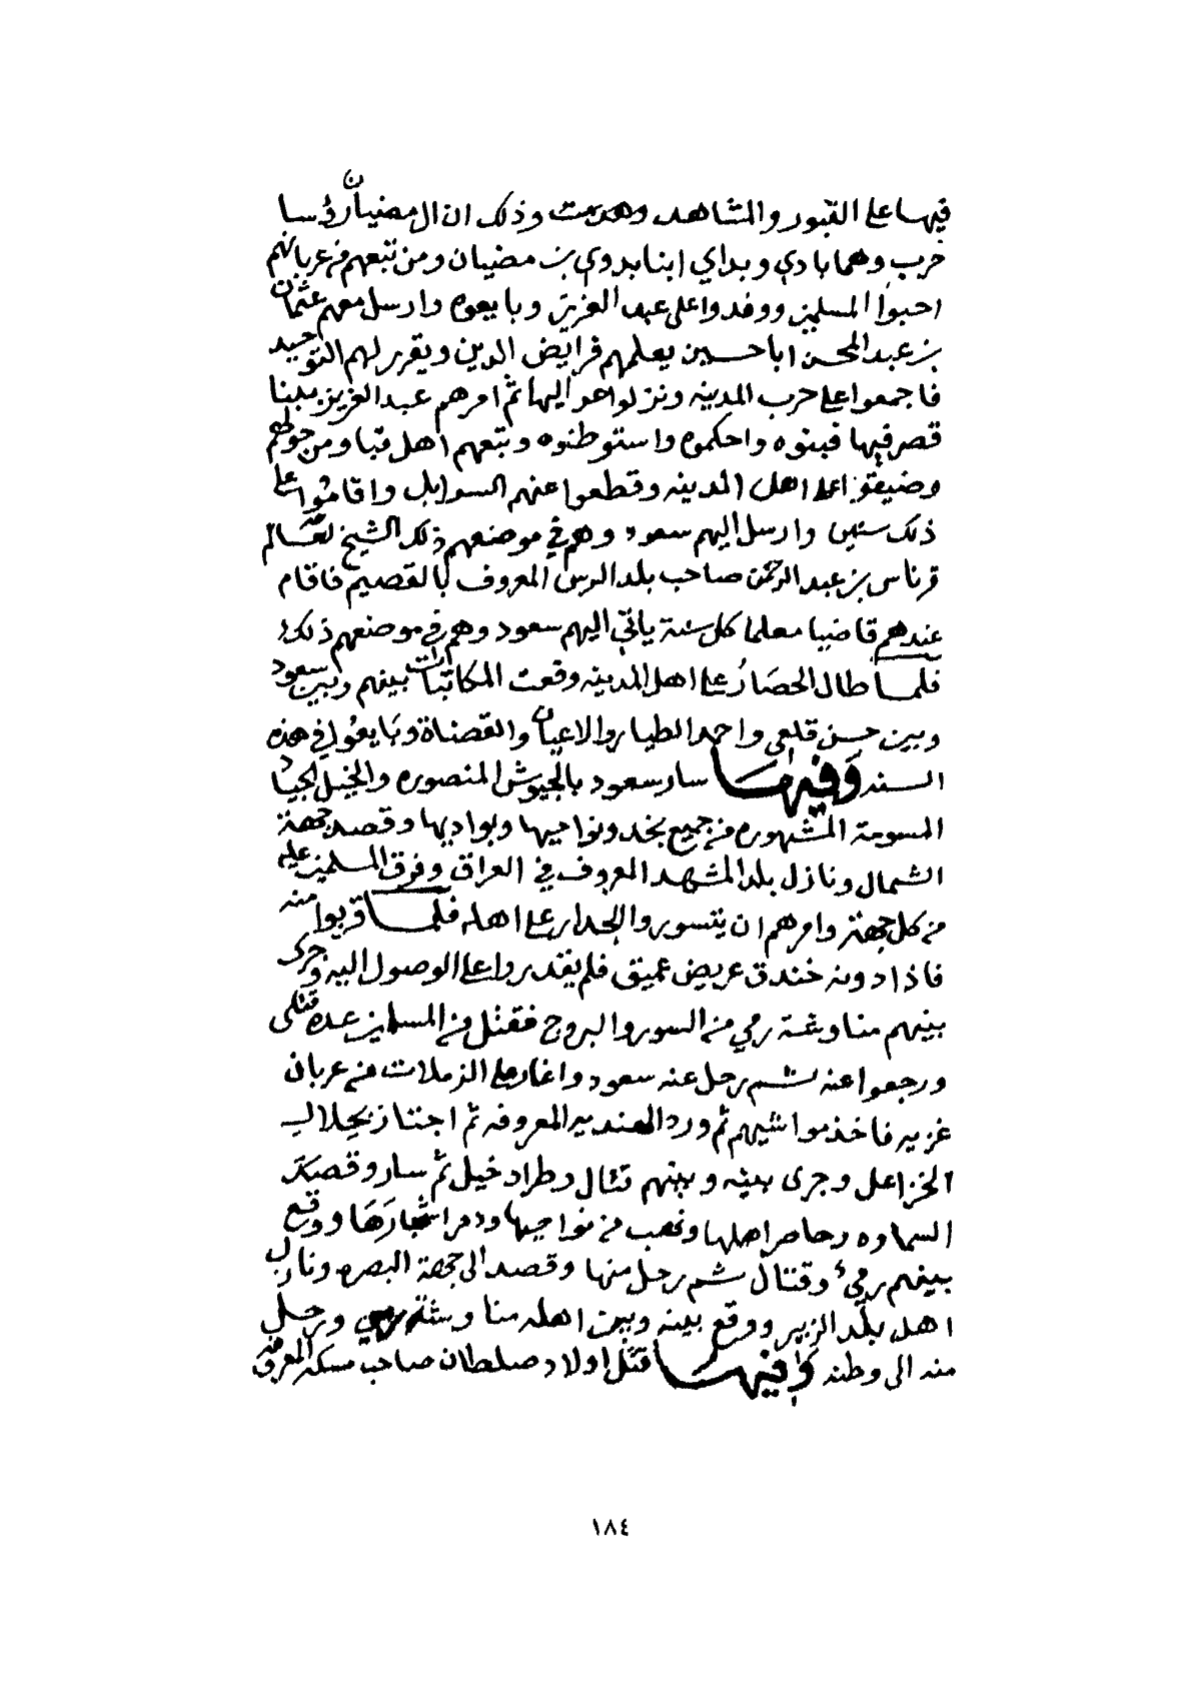 فيها على القبور والمشاهد وهدمت وذلك ان ال مضيان رؤسا
حرب وهما بادي وبداي ابنا بدوي بن مضيان ومن تبعهم من عربانهم
احبوا المسلمين ووفدوا على عبد العزيز وبايعوه وارسل معهم عثمان
بن عبد المحسن اباحسين يعلمهم فرايض الدين ويقرر لهم التوحيد
فاجمعوا على حرب المدينه ونزلوا عواليها ثم امرهم عبد العزيز ببنا
قصر فيها فبنوه واحكموه واستوطنوه وتبعهم اهل قبا ومن حولهم
وضيقوا على اهل المدينه وقطعوا عنهم السوابل واقاموا على
ذلك سنين وارسل اليهم سعود وهم في موضعهم ذلك الشيخ العالم
قرناس بن عبد الرحمن صاحب بلد الرس المعروف بالقصيم فاقام
عندهم قاضيا معلما كل سنة ياتي اليهم سعود وهم في موضعهم ذلك
فلما طال الحصار على اهل المدينه وقعت المكاتبات بينهم وبين سعود
وبين حسن قلعي واحمد الطيار والاعيان والقضاة وبايعوا في هذه
السنه وفيها سار سعود بالجيوش المنصوره والخيل الجياد
المسومة المشهوره من جميع نجد ونواحيها وبواديها وقصد جهة
الشمال ونازل بلد المشهد المعروف في العراق وفرق المسلمين عليه
من كل جهة وامرهم ان يتسوروا الجدار على اهله فلما قربوا منه
فاذا دونه خندق عريض عميق فلم يقدروا على الوصول اليه وجرى
بينهم مناوشة رمي من السور والبروج فقتل من المسلمين عده قتلى
ورجعوا عنه ثم رحل عنه سعود واغار على الزملات من عربان
غزيه فاخذ مواشيهم ثم ورد الهنديه المعروفه ثم اجتاز بحلال
الخزاعل وجرى بينه وبينهم قتال وطراد خيل ثم سار وقصد
السماوه وحاصر اهلها ونهب من نواحيها ودمر اشجارها ووقع
بينهم رمي وقتال ثم رحل منها وقصد الى جهة البصره ونازل
اهل بلد الزبير ووقع بينه وبين اهله مناوشة رمي ورحل
منه الى وطنه وفيها قتل اولاد صلطان صاحب مسكه المعروف
١٨٤